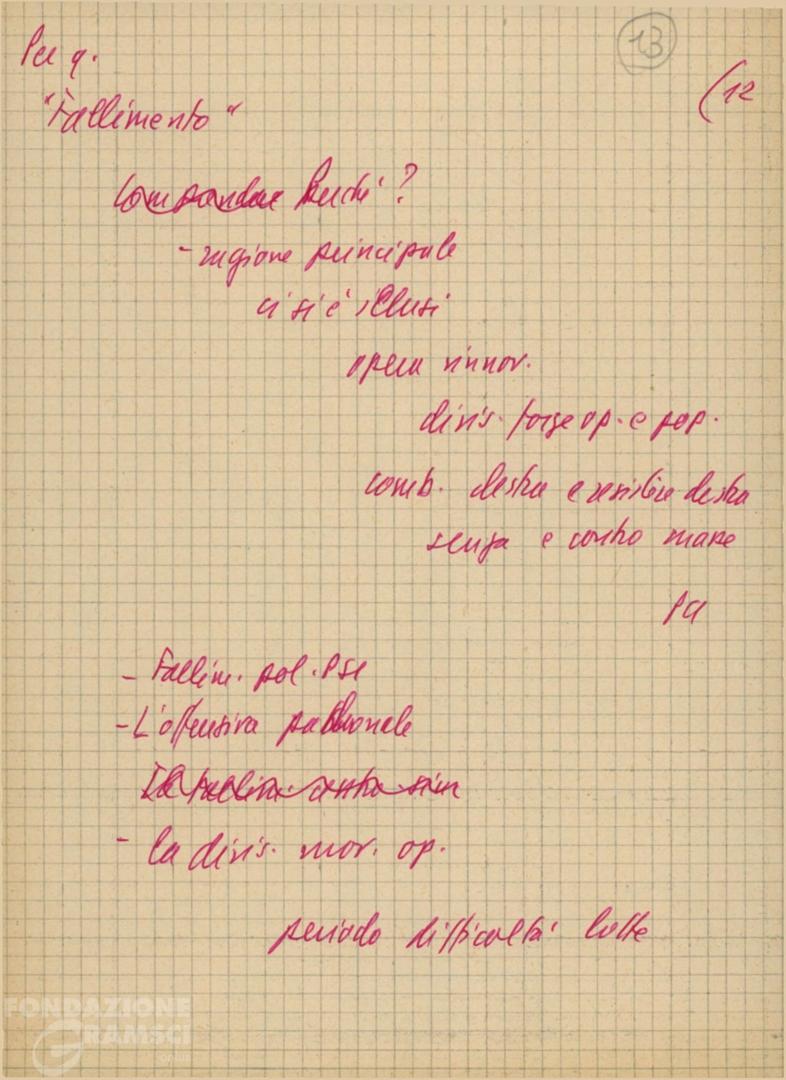 13
(12
Per q.
"Fallimento"
Comandare Perché?
- ragione principale
ci si è illusi
opera rinnov.
divis. forze op. e pop.
comb. destra e resistere destra
senza e contro masse
- Fallim. pol. PSI
- L'offensiva padronale
Il fallim. centro sin
- la divis. mov. op.
periodo difficoltà lotte
FONDAZIONE
GRAMSCI